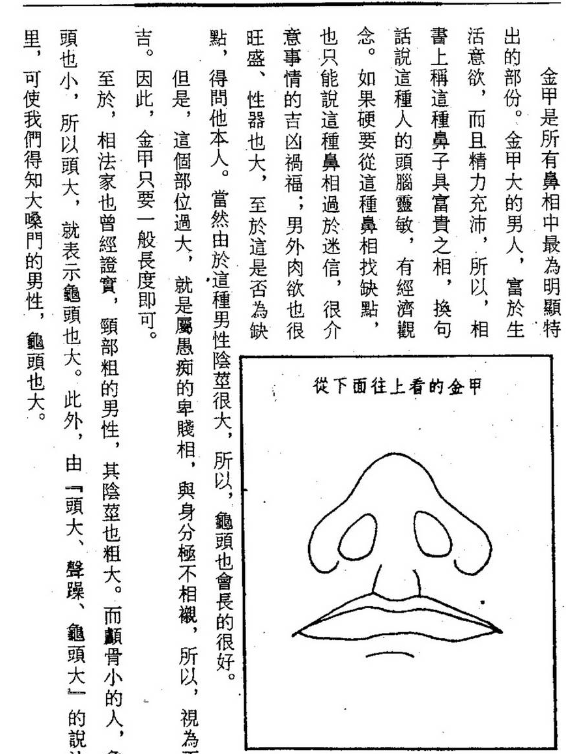 金甲是所有鼻相中最為明顯特
出的部份。金甲大的男人，富於生
活意欲，而且精力充沛，所以，相
書上稱這種鼻子具富貴之相，換句
話說這種人的頭腦靈敏，有經濟觀
念。如果硬要從這種鼻相找缺點，
也只能說這種鼻相過於迷信，很介
意事情的吉凶禍福；男外肉欲也很
旺盛、性器也大，至於這是否為缺
點，得問他本人。當然由於這種男性陰莖很大，所以，龜頭也會長的很好。
但是，這個部位過大，就是屬愚痴的卑賤相，與身分極不相襯，所以，視為
吉。因此，金甲只要一般長度即可。
至於，相法家也曾經證實，頸部粗的男性，其陰莖也粗大。而顱骨小的人，
頭也小，所以頭大，就表示龜頭也大。此外，由『頭大、聲躁、龜頭大』的說
里，可使我們得知大嗓門的男性，龜頭也大。
從下面往上看的金甲